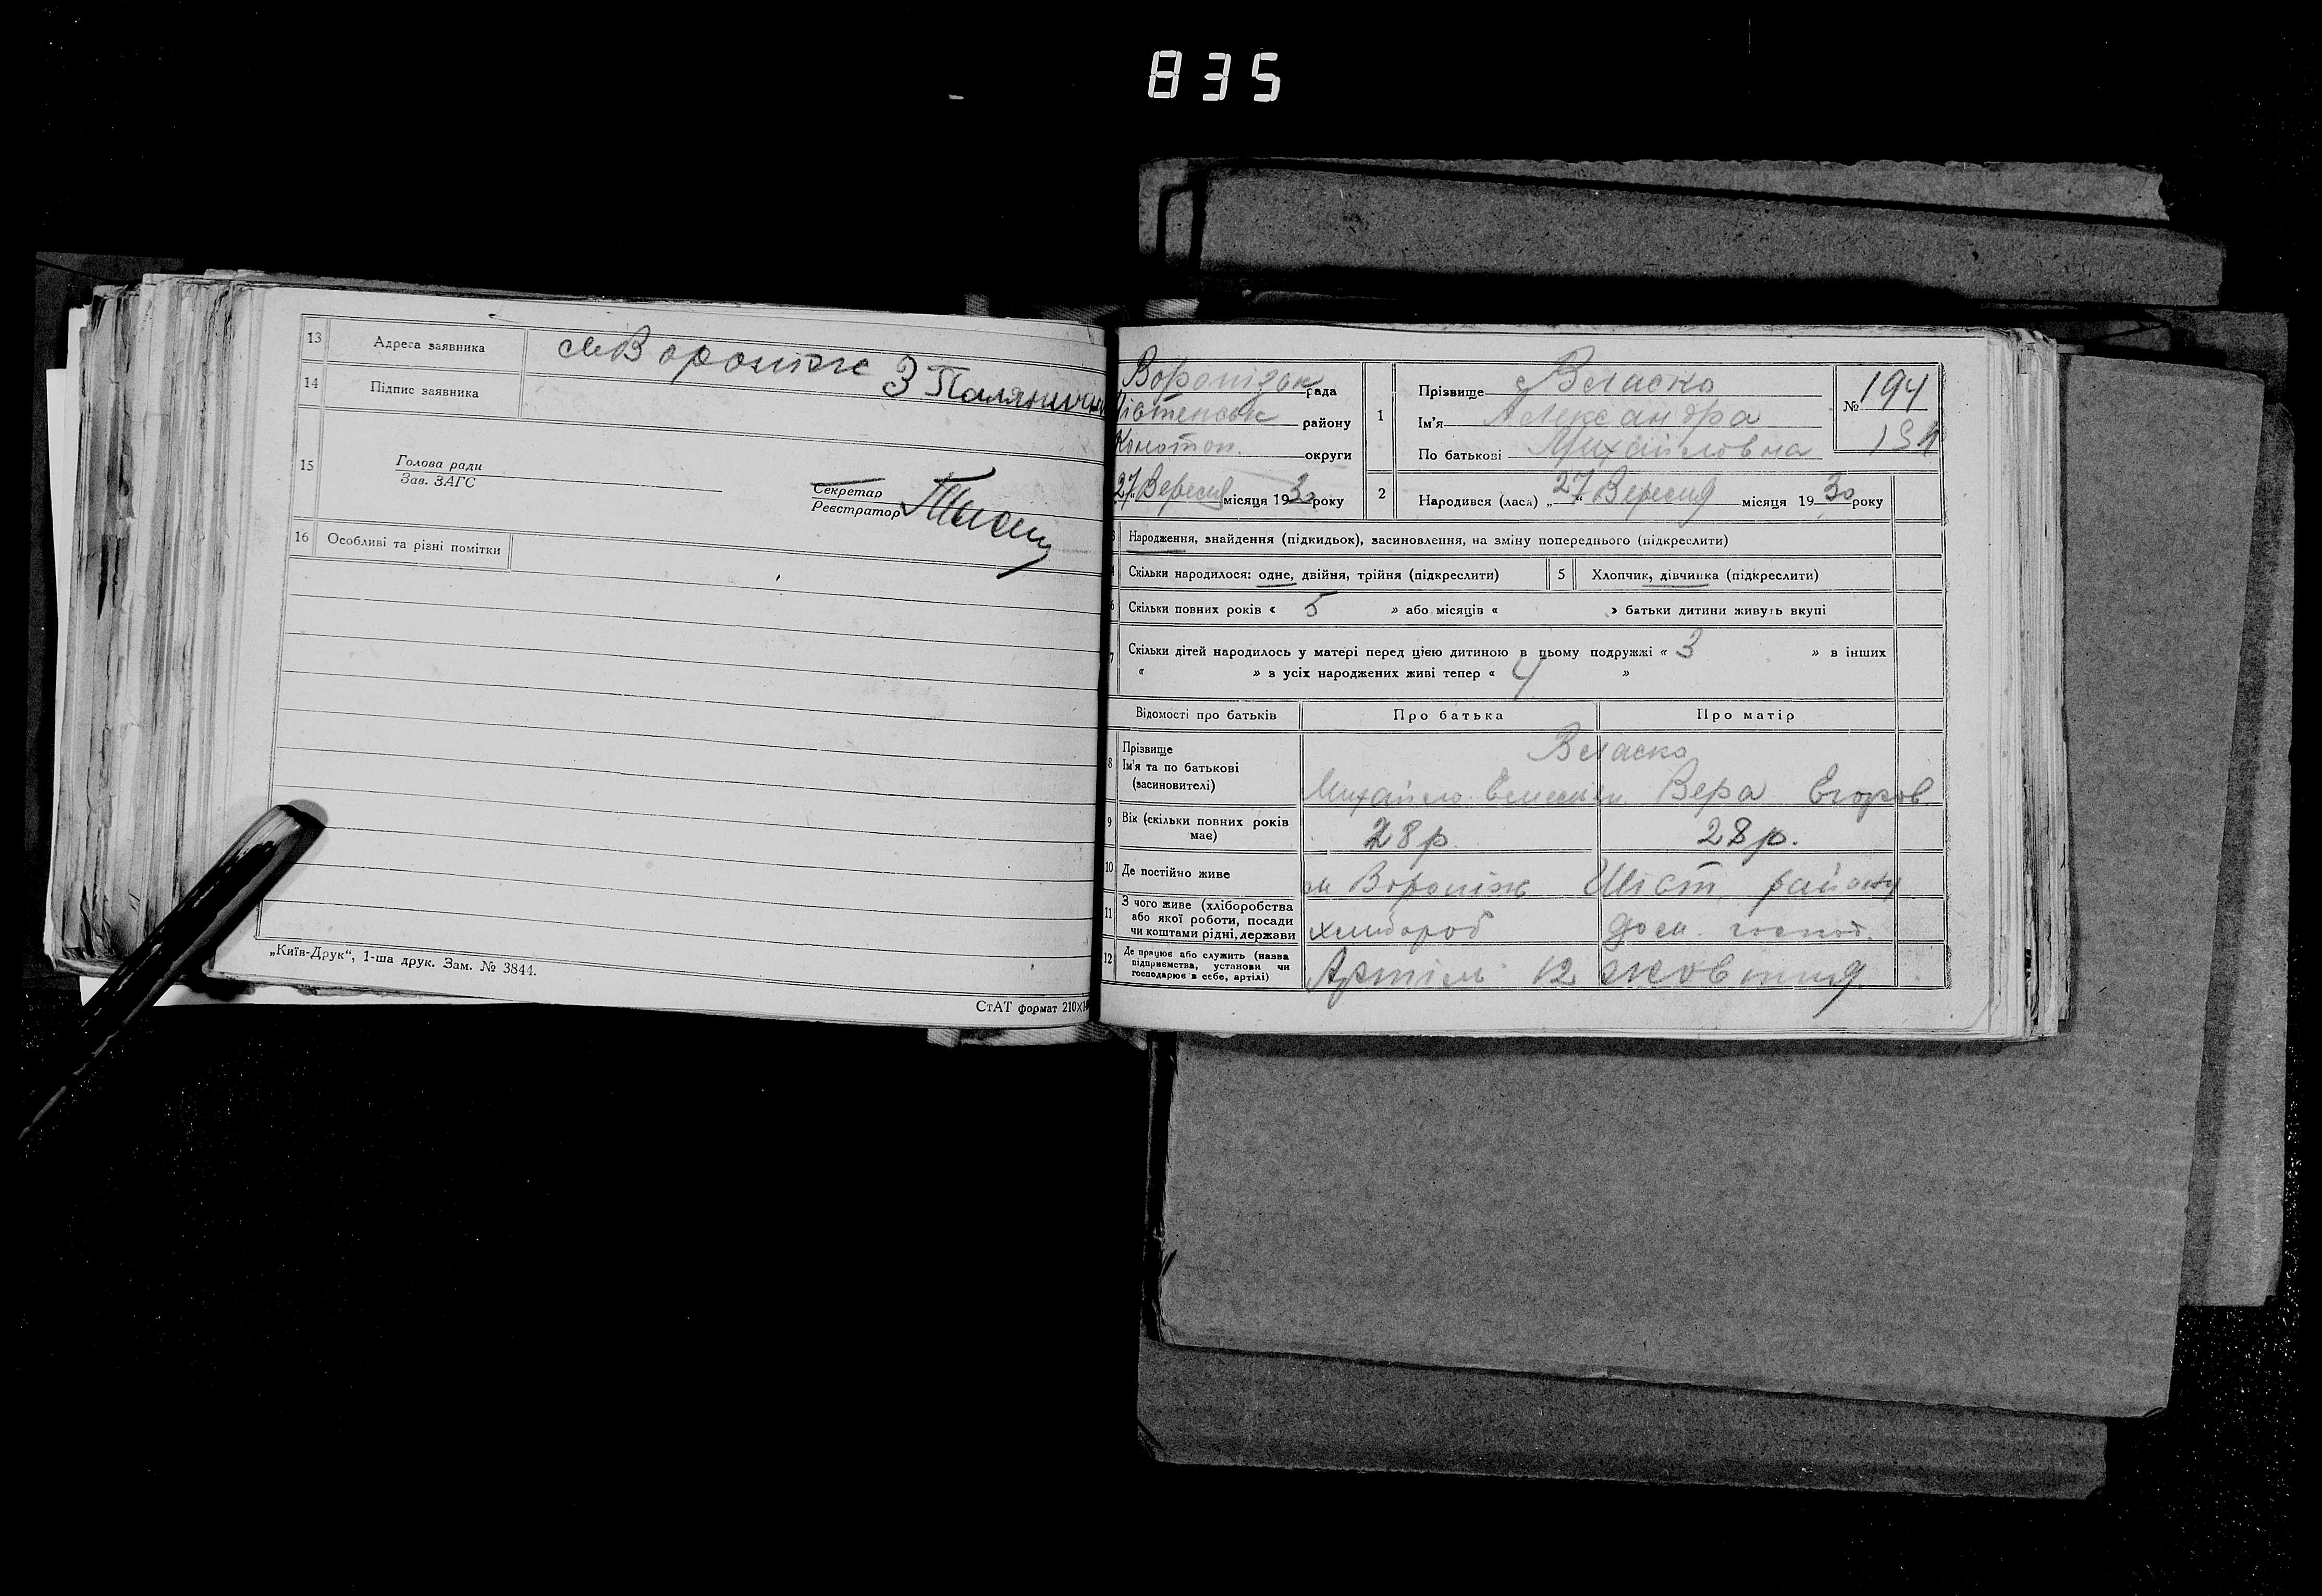 835
13 Адреса заявника м Вороніж
14 Підпис заявника З Паляничк
15 Голова ради
Зав. ЗАГС
Секретар
Реєстратор
16 Особливі та різні помітки
„Київ-Друк“, 1-ша друк. Зам. № 3844.
СтАТ формат 210х1
Воронізок рада
району
Конотоп. округи
27 Вересня місяця 1930 року
1 Прізвище Власко
Ім'я Александра
По батькові Михайловна
№ 194
2 Народився (лася) „27“ Вересня місяця 1930 року
3 Народження, знайдення (підкидьок), засиновлення, на зміну попереднього (підкреслити)
4 Скільки народилося: одне, двійня, трійня (підкреслити) 5 Хлопчик, дівчинка (підкреслити)
6 Скільки повних років « 5 » або місяців « » батьки дитини живуть вкупі
7 Скільки дітей народилось у матері перед цією дитиною в цьому подружжі « 3 » в інших
« » з усіх народжених живі тепер « 4 »
Відомості про батьків Про батька Про матір
8 Прізвище Власко
Ім'я та по батькові
(засиновителі) Михайло Вера Егоров
9 Вік (скільки повних років
має) 28 р 28 р.
10 Де постійно живе м Вороніж Шіст. району
11 З чого живе (хліборобства
або якої роботи, посади
чи коштами рідні, держави хлібороб дом. господ.
12 Де працює або служить (назва
підприємства, установи чи
господарює в себе, артілі) Артіль 12 жовтня